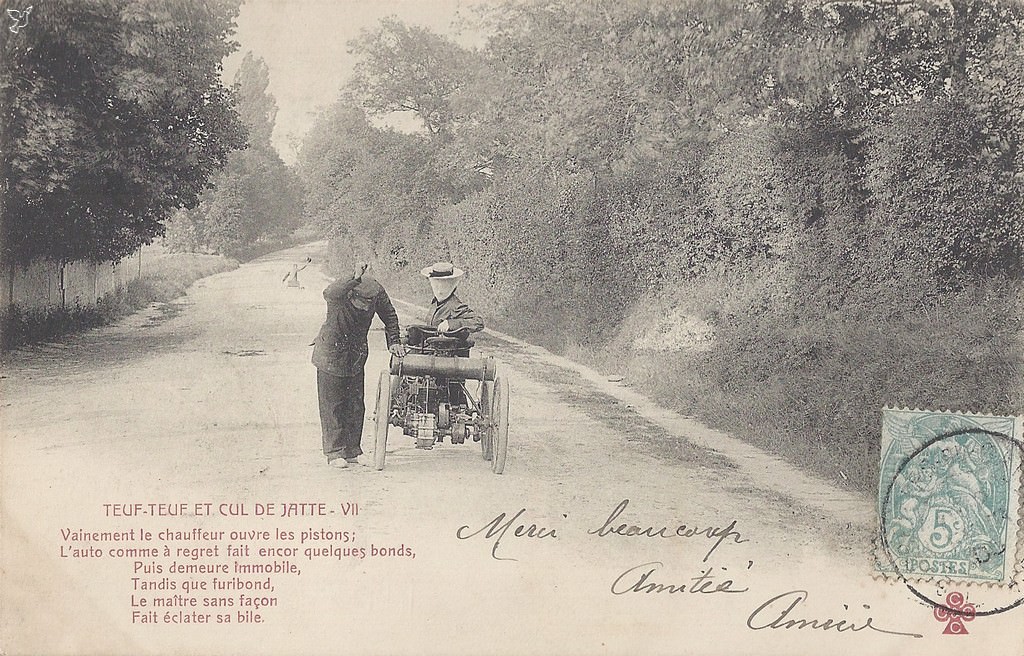 TEUF-TEUF ET CUL DE JATTE - VII
Vainement le chauffeur ouvre les pistons;
L'auto comme à regret fait encor quelques bonds,
Puis demeure immobile,
Tandis que furibond,
Le maître sans façon
Fait éclater sa bile.
Merci beaucoup
Amitié
5c
POSTES